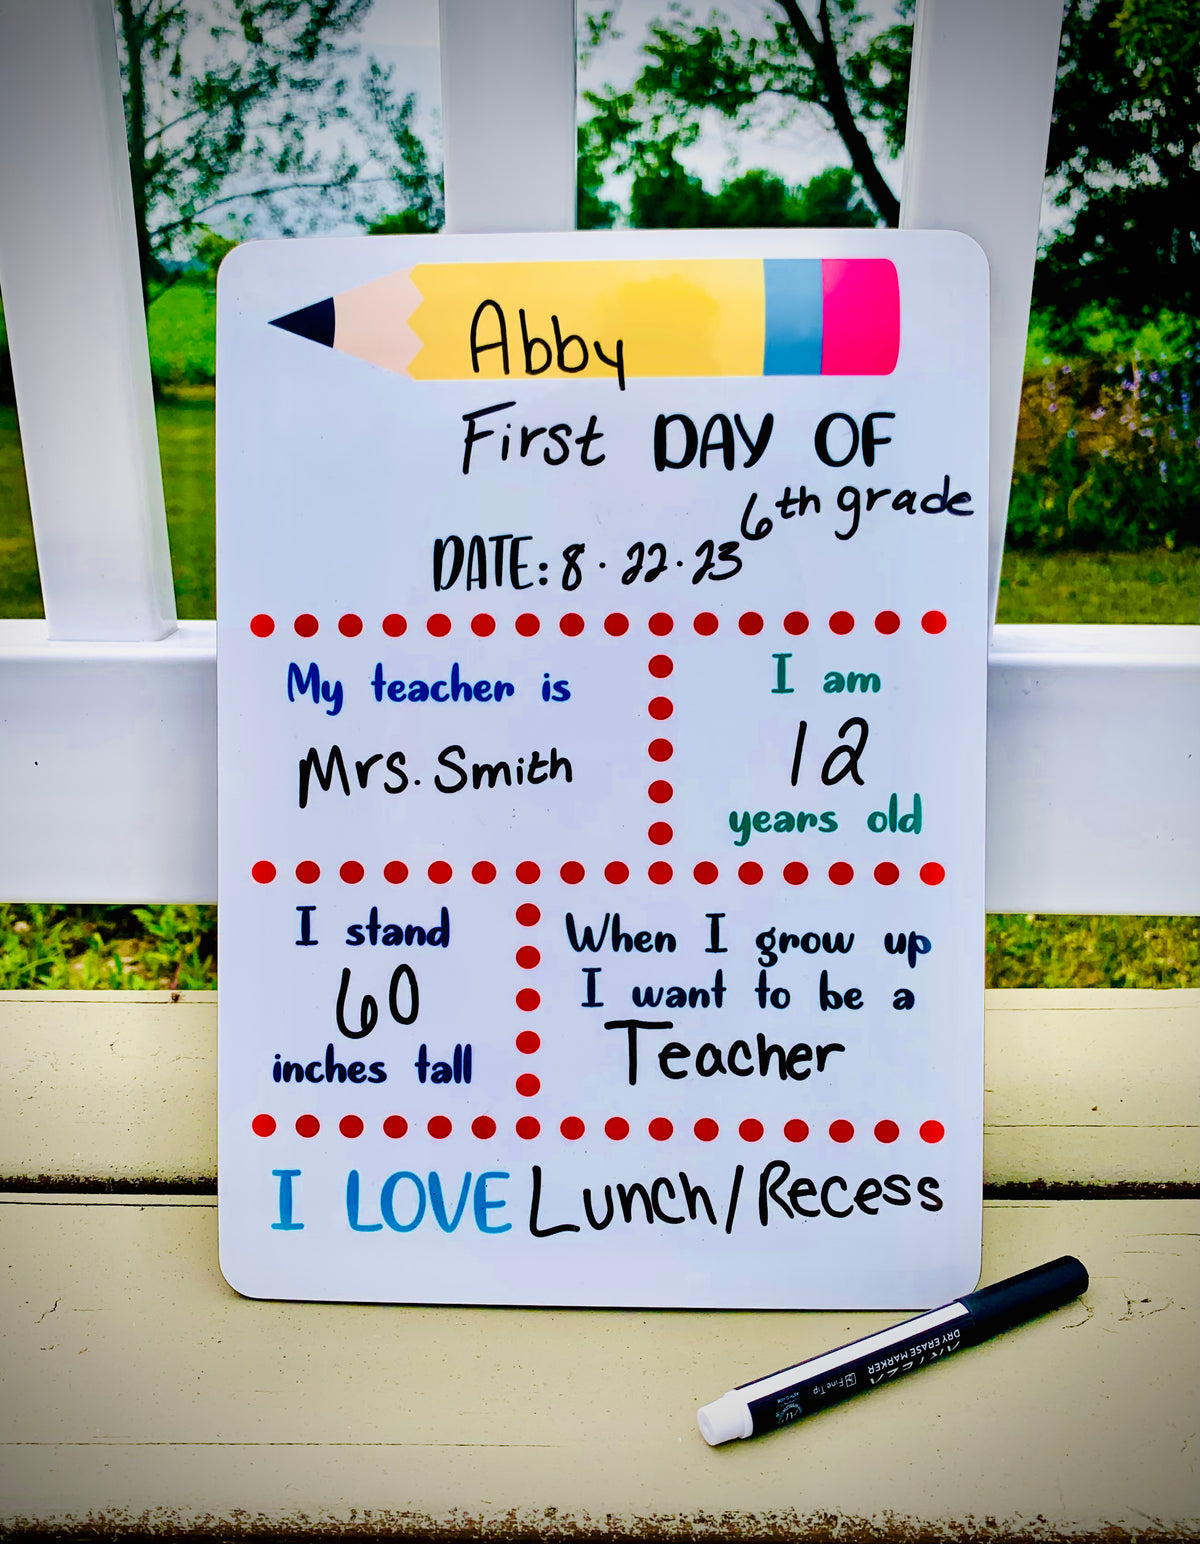 Abby
First DAY OF
6th grade
DATE: 8.22.23
My teacher is
Mrs. Smith
I am
12
years old
I stand
60
inches tall
When I grow up
I want to be a
Teacher
I LOVE Lunch/Recess
DRY ERASE MARKER
Fine Tip